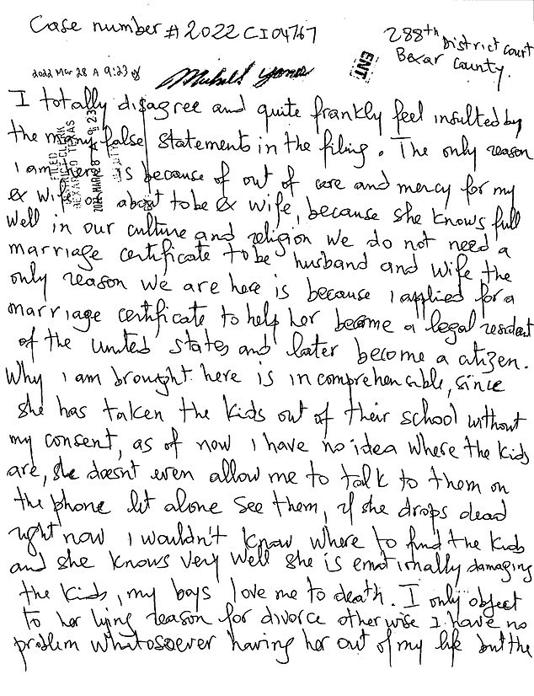 Case number # 2022 CI 04767
288th District court
Bexar County.
2022 MAR 28 A 9:23
ENT
I totally disagree and quite frankly feel insulted by
the many false statements in the filing. The only reason
I am here is because of out of care and mercy for my
ex wife about to be ex wife, because she knows full
well in our culture and religion we do not need a
marriage certificate to be husband and wife the
only reason we are here is because I applied for a
marriage certificate to help her become a legal resident
of the united states and later become a citizen.
Why I am brought here is incomprehensible, since
she has taken the kids out of their school without
my consent, as of now I have no idea where the kids
are, she doesnt even allow me to talk to them on
the phone let alone see them, if she drops dead
right now I wouldn't know where to find the kids
and she knows very well she is emotionally damaging
the kids, my boys love me to death. I only object
to her lying reason for divorce otherwise I have no
problem whatsoever having her out of my life but the